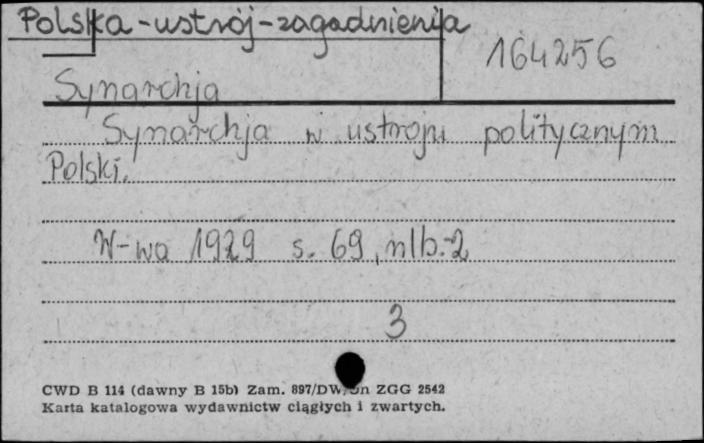 Polska-ustrój-zagadnienia
164256
Synarchja
Synarchja w ustroju politycznym
Polski.
W-wa 1929 s. 69, nlb.-2
3
CWD B 114 (dawny B 15b) Zam. 897/DW ZGG 2542
Karta katalogowa wydawnictw ciągłych i zwartych.